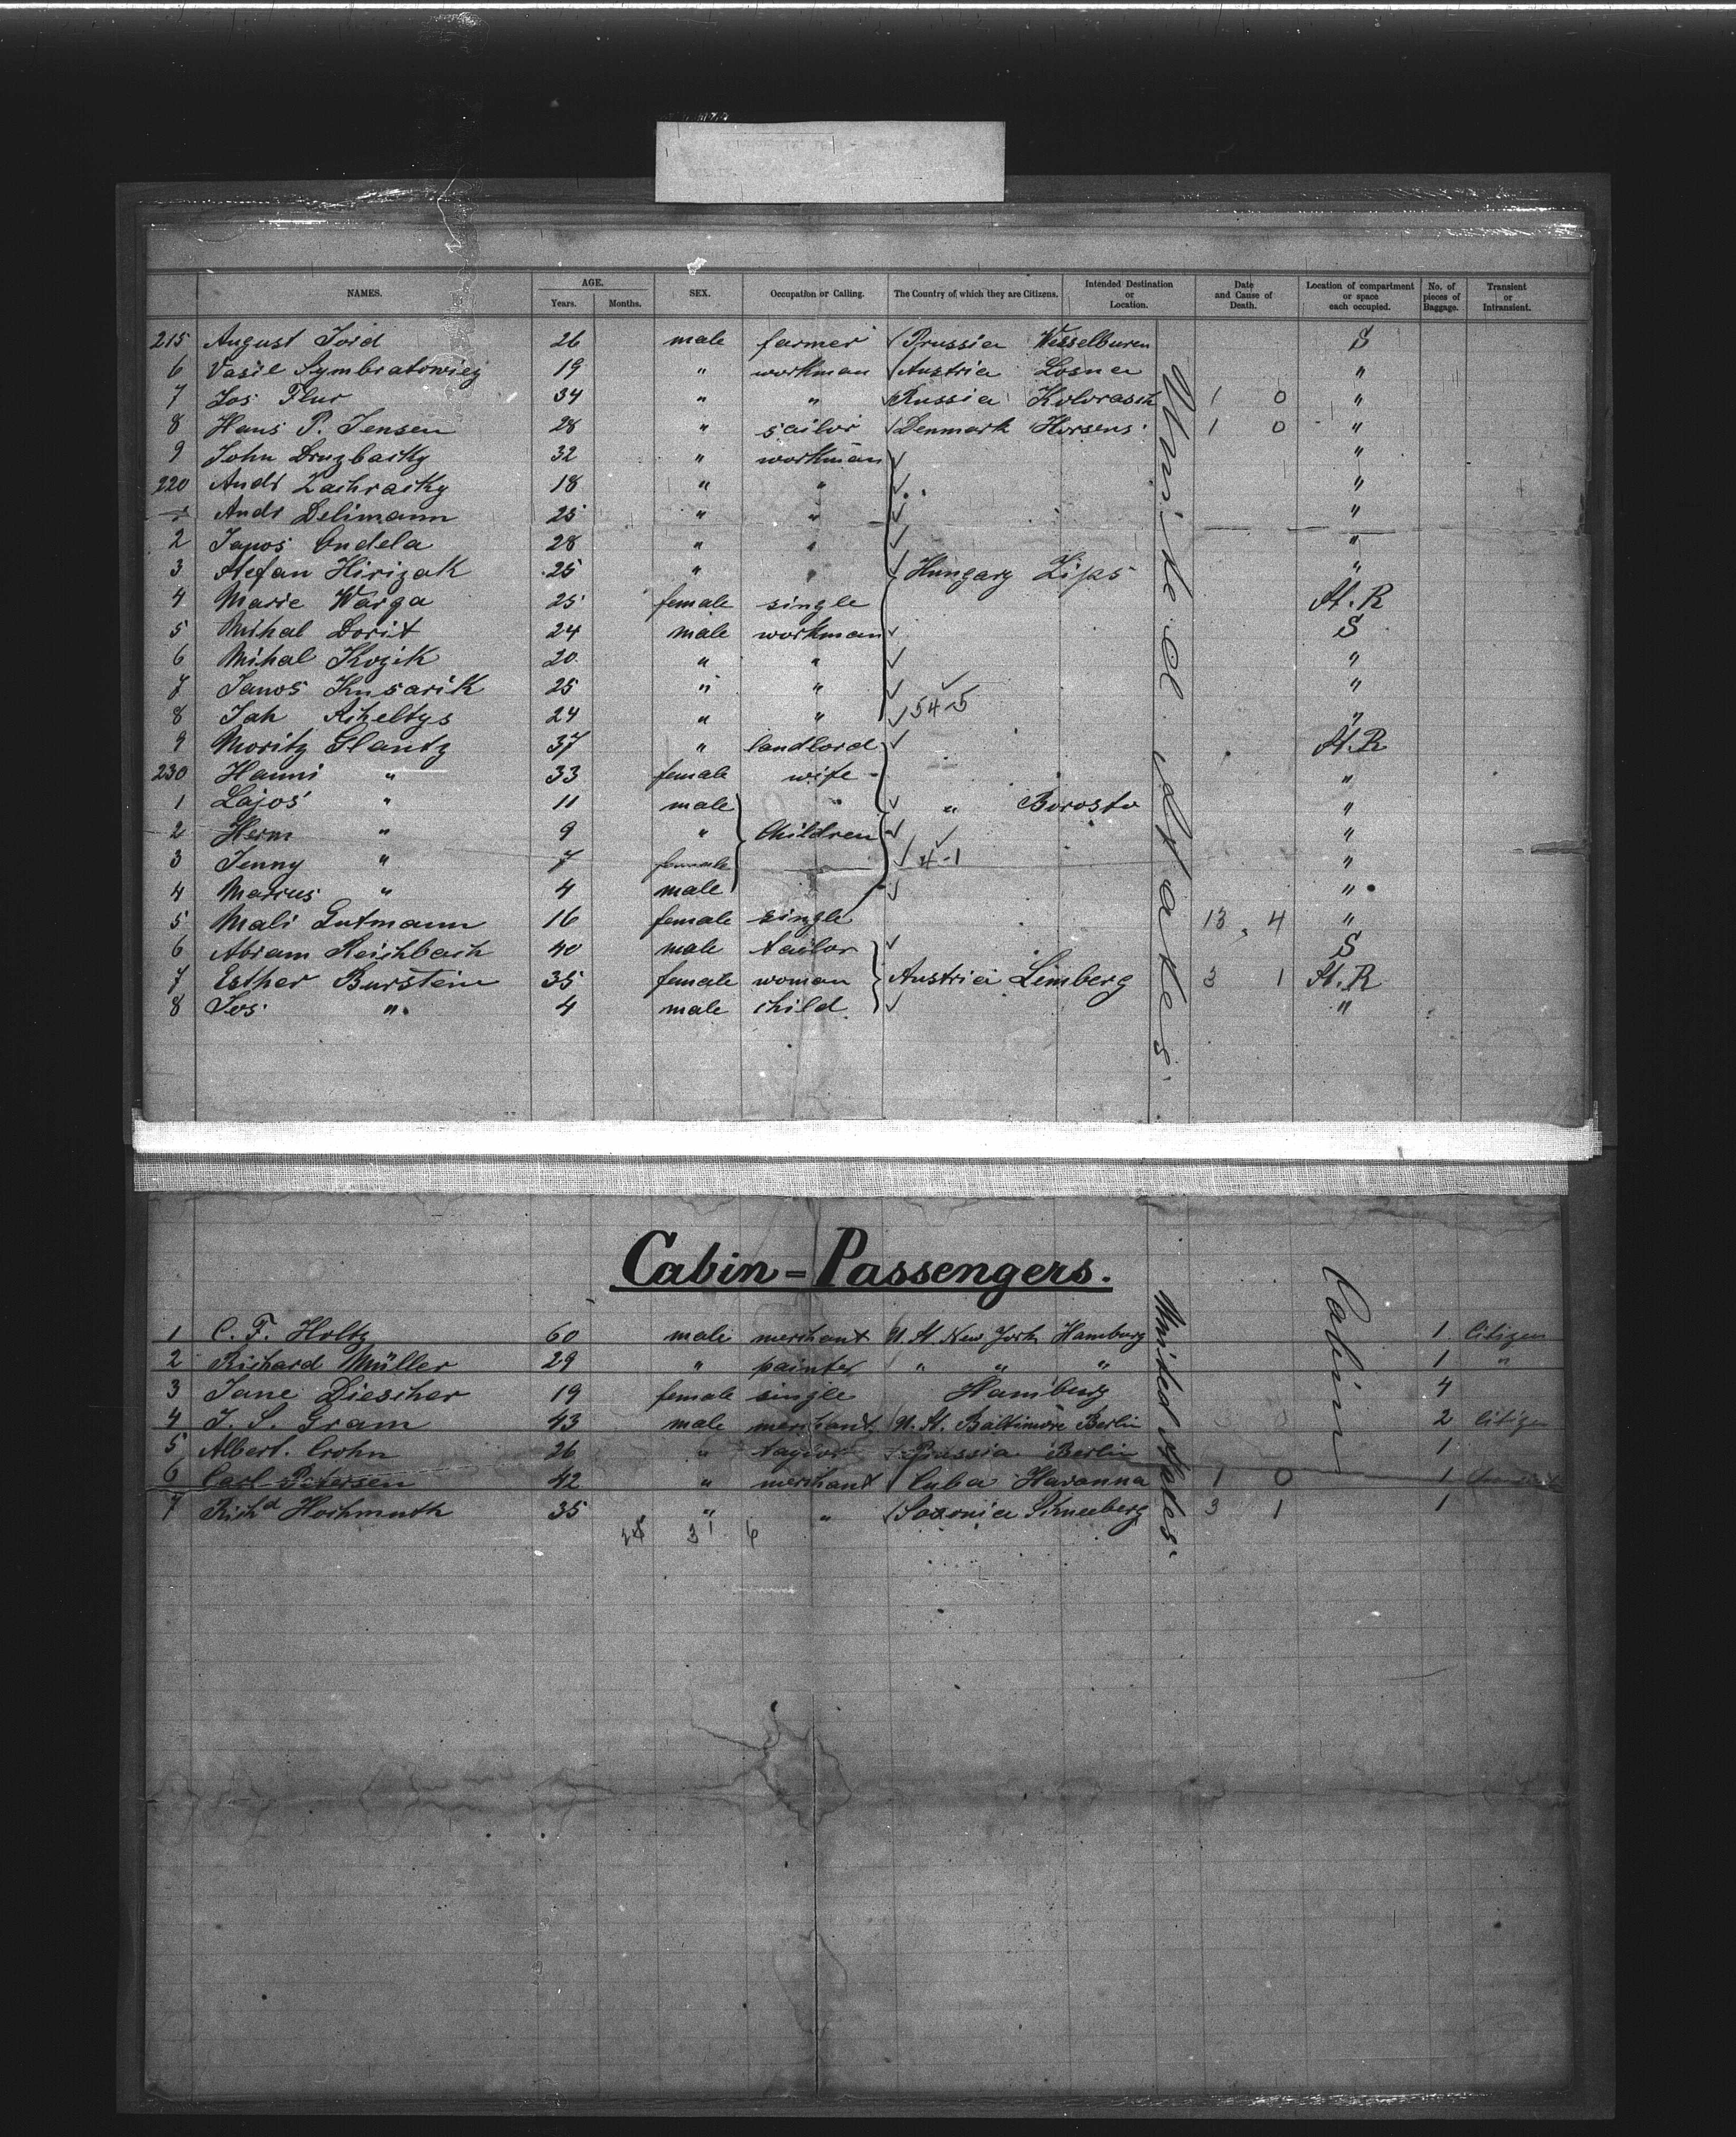 NAMES. AGE. Years. Months. SEX. Occupation or Calling. The Country of which they are Citizens. Intended Destination or Location. Date and Cause of Death. Location of compartment or space each occupied. No. of pieces of Baggage. Transient or Intransient.
215 August 26 male farmer Prussia Wesselburen S
6 Vasil Symbratowiez 19 " workman Austria Losna "
7 Jos. Flur 34 " " Russia "
1 0
8 Hans P. Jensen 28 " sailor Denmark Horsens 1 0 "
9 John Druzbacky 32 " workman "
220 Andr Zachracky 18 " " "
1 Andr Delimann 25 " " "
2 Janos Ondela 28 " " "
3 Stefan Hirizak 25 " " Hungary Zips "
4 Marie Warga 25 female single St. R
5 Mihal Dorit 24 male workman S
6 Mihal Kozik 20 " " "
7 Janos Kusarik 25 " " "
8 Jah 24 " " 54-5 "
9 Moritz Glantz 37 " landlord St. R
230 Hanni " 33 female wife "
1 Lajos " 11 male " " Borosto "
2 Herm " 9 " Children "
3 Jenny " 7 female 4-1 "
4 Marcus " 4 male "
5 Mali Gutmann 16 female single 13, 4 "
6 Abram Reichbach 40 male tailor S
7 Esther Burstein 35 female woman Austria Limberg 3 1 St. R
8 Jos. " 4 male child "
United States.
Cabin-Passengers.
1 C. F. Holtz 60 male merchant U. St. New York Hamburg 1 Citizen
2 Richard Müller 29 " painter " " " 1 "
3 Jane Diescher 19 female single Hamburg 4
4 J. S. Gram 43 male merchant U. St. Baltimore Berlin 2 Citizen
5 Albert Crohn 26 " taylor Prussia Berlin 1
6 Carl Petersen 42 " merchant Cuba Havanna 1 0 1
7 Richd Hochmuth 35 " " Saxonia Schneeberg 3 1 1
3 1 6
United States.
Cabin